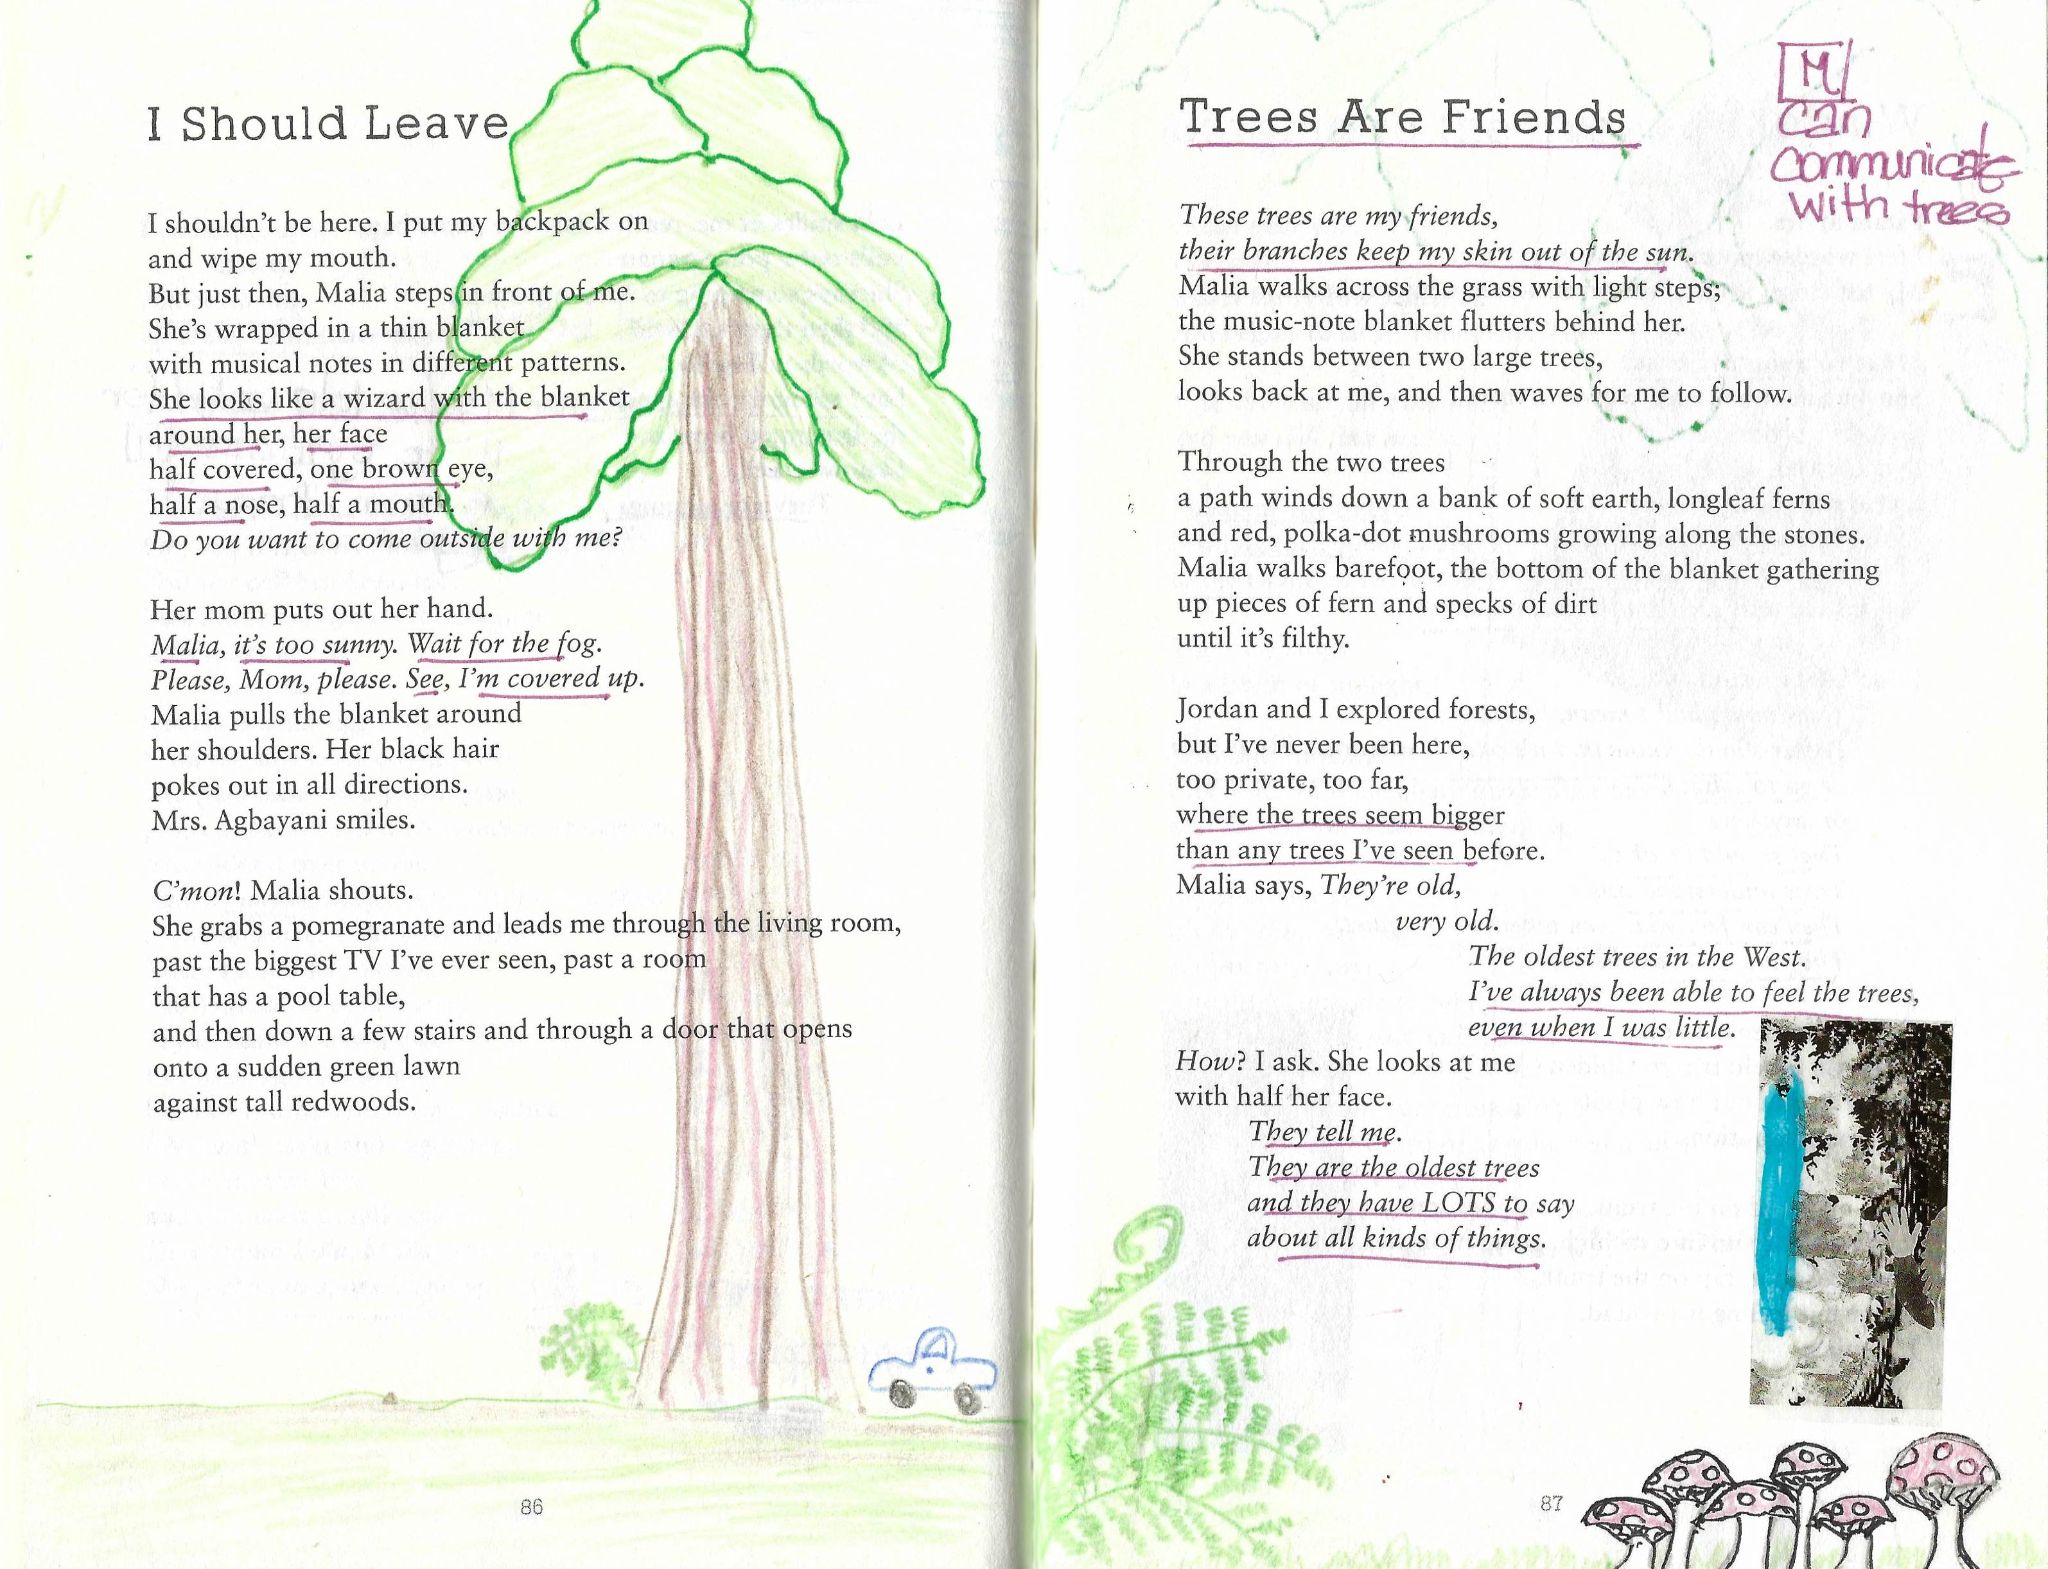 I Should Leave
I shouldn't be here. I put my backpack on
and wipe my mouth.
But just then, Malia steps in front of me.
She's wrapped in a thin blanket
with musical notes in different patterns.
She looks like a wizard with the blanket
around her, her face
half covered, one brown eye,
half a nose, half a mouth.
Do you want to come outside with me?
Her mom puts out her hand.
Malia, it's too sunny. Wait for the fog.
Please, Mom, please. See, I'm covered up.
Malia pulls the blanket around
her shoulders. Her black hair
pokes out in all directions.
Mrs. Agbayani smiles.
C'mon! Malia shouts.
She grabs a pomegranate and leads me through the living room,
past the biggest TV I've ever seen, past a room
that has a pool table,
and then down a few stairs and through a door that opens
onto a sudden green lawn
against tall redwoods.
86
Trees Are Friends
M
can
communicate
with trees
These trees are my friends,
their branches keep my skin out of the sun.
Malia walks across the grass with light steps;
the music-note blanket flutters behind her.
She stands between two large trees,
looks back at me, and then waves for me to follow.
Through the two trees
a path winds down a bank of soft earth, longleaf ferns
and red, polka-dot mushrooms growing along the stones.
Malia walks barefoot, the bottom of the blanket gathering
up pieces of fern and specks of dirt
until it's filthy.
Jordan and I explored forests,
but I've never been here,
too private, too far,
where the trees seem bigger
than any trees I've seen before.
Malia says, They're old,
very old.
The oldest trees in the West.
I've always been able to feel the trees,
even when I was little.
How? I ask. She looks at me
with half her face.
They tell me.
They are the oldest trees
and they have LOTS to say
about all kinds of things.
87